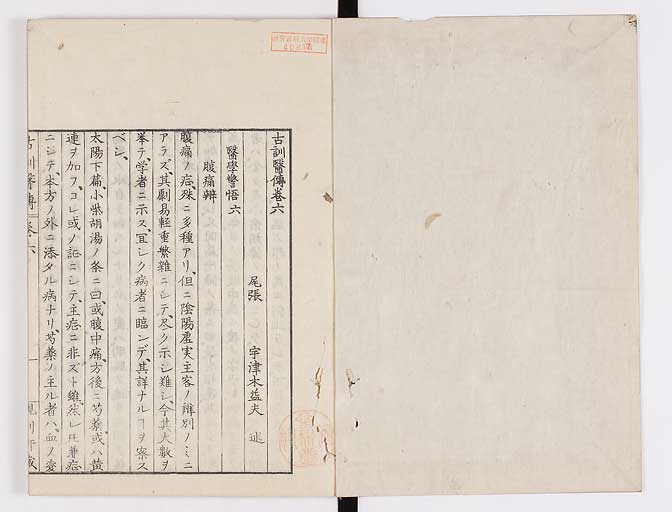 古訓醫傳卷六
尾張 宇津木益夫 述
醫學警悟 六
腹痛辨
腹痛ノ症、殊ニ多種アリ、但ニ陰陽虚実主客ノ辨別ノミニ
アラズ、其劇易軽重繁雜ニシテ、尽ク示シ難シ、今其大數ヲ
挙テ、学者ニ示ス、冝シク病者ニ臨ンデ、其詳ナルヿヲ察ス
ベシ、
太陽下篇、小柴胡湯ノ条ニ曰、或腹中痛、方後ニ芍薬、或ハ黄
連ヲ加フ、コレ或ノ証ニシテ、主症ニ非ズト雖、然レ𪜈兼症
ニシテ、本方ノ外ニ添タル病ナリ、芍藥ノ主ル者ハ、血ノ変
古訓醫傳 卷六 一